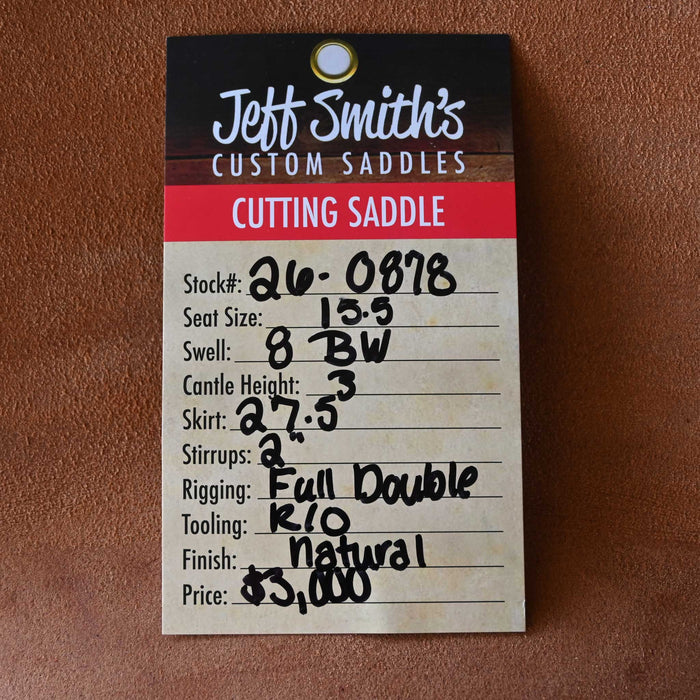 Jeff Smith's
CUSTOM SADDLES
CUTTING SADDLE
Stock#: 26-0878
Seat Size: 15.5
Swell: 8 BW
Cantle Height: 3
Skirt: 27.5
Stirrups: 2"
Rigging: Full Double
Tooling: R/O
Finish: natural
Price: $3,000